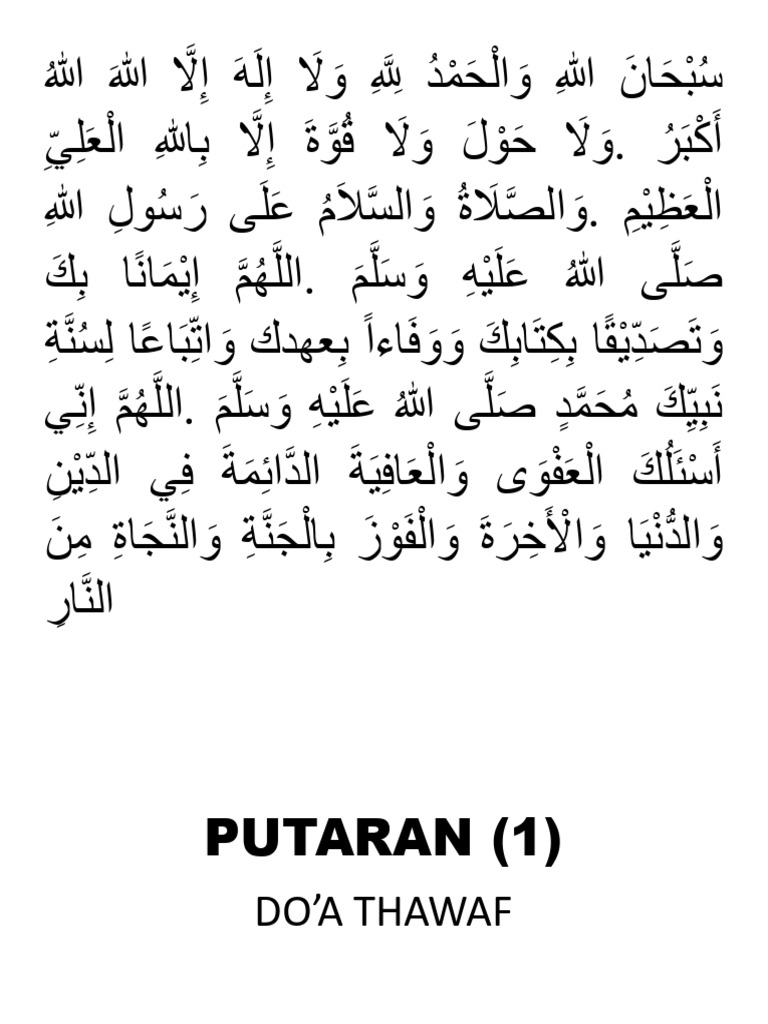 سُبْحَانَ اللهِ وَالْحَمْدُ لِلَّهِ وَلَا إِلَهَ إِلَّا اللهَ اللهُ
أَكْبَرُ .وَلَا حَوْلَ وَلَا قُوَّةَ إِلَّا بِاللهِ الْعَلِيِّ
الْعَظِيْمِ .وَالصَّلَاةُ وَالسَّلاَمُ عَلَى رَسُولِ اللهِ
صَلَّى اللهُ عَلَيْهِ وَسَلَّمَ .اللَّهُمَّ إِيْمَانًا بِكَ
وَتَصَدِّيْقًا بِكِتَابِكَ وَوَفَاءاً بِعهدك وَاتِّبَاعًا لِسُنَّةِ
نَبِيِّكَ مُحَمَّدٍ صَلَّى اللهُ عَلَيْهِ وَسَلَّمَ .اللَّهُمَّ إِنِّي
أَسْئَلُكَ الْعَفْوَى وَالْعَافِيَةَ الدَّائِمَةَ فِي الدِّيْنِ
وَالدُّنْيَا وَالْأَخِرَةَ وَالْفَوْزَ بِالْجَنَّةِ وَالنَّجَاةِ مِنَ
النَّارِ
PUTARAN (1)
DO’A THAWAF